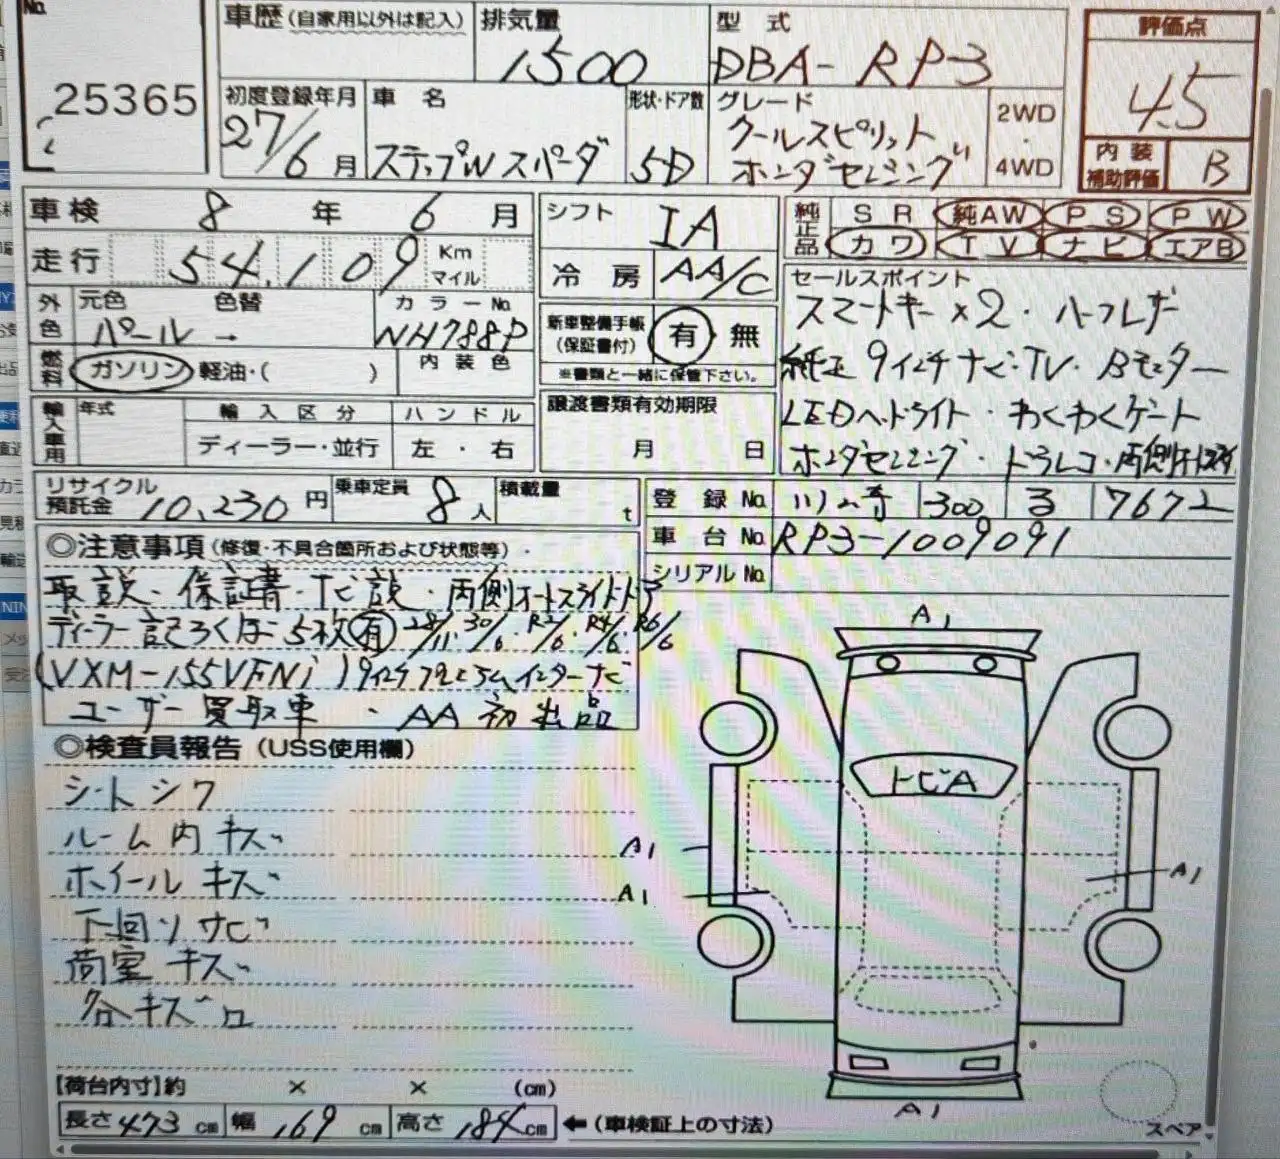 No.
25365
車歴(自家用以外は記入)
排気量
1500
型式
DBA-RP3
評価点
4.5
内装補助評価
B
初度登録年月
27/6月
車名
ステップWスパーダ
形状・ドア数
5D
グレード
クールスピリット
ホンダセンシング
2WD
・
4WD
車検 8年 6月
走行 54,109 Km マイル
シフト
IA
冷房
AA/C
純正品
SR 純AW PS PW
カワ TV ナビ エアB
外色
元色 パール → 色替
カラーNo.
NH788P
燃料
ガソリン 軽油・( )
内装色
新車整備手帳
(保証書付)
有 無
※書類と一緒に保管下さい。
セールスポイント
スマートキー×2・ハーフレザー
純正9インチナビ・TV・Bモニター
LEDヘッドライト・わくわくゲート
ホンダセンシング・ドラレコ・両側オートスライド
輸入車用
年式
輸入区分
ディーラー・並行
ハンドル
左・右
譲渡書類有効期限
月 日
リサイクル預託金 10,230円
乗車定員 8人
積載量 t
登録No. 川崎 300 る 7672
車台No. RP3-1009091
シリアルNo.
◎注意事項(修復・不具合箇所および状態等)
取説・保証書・ナビ説・両側オートスライドドア
ディーラー記ろくぼ5枚(有) 28/11 30/6 R2/6 R4/6 R6/6
(VXM-155VFNi)9インチプレミアムインターナビ
ユーザー買取車・AA初出品
◎検査員報告(USS使用欄)
シートシワ
ルーム内キズ
ホイールキズ
下回りサビ
荷室キズ
各キズ凹
A1
トビA
A1
A1
A1
A1
【荷台内寸】約 × × (cm)
長さ473cm 幅169cm 高さ184cm ←(車検証上の寸法)
スペア